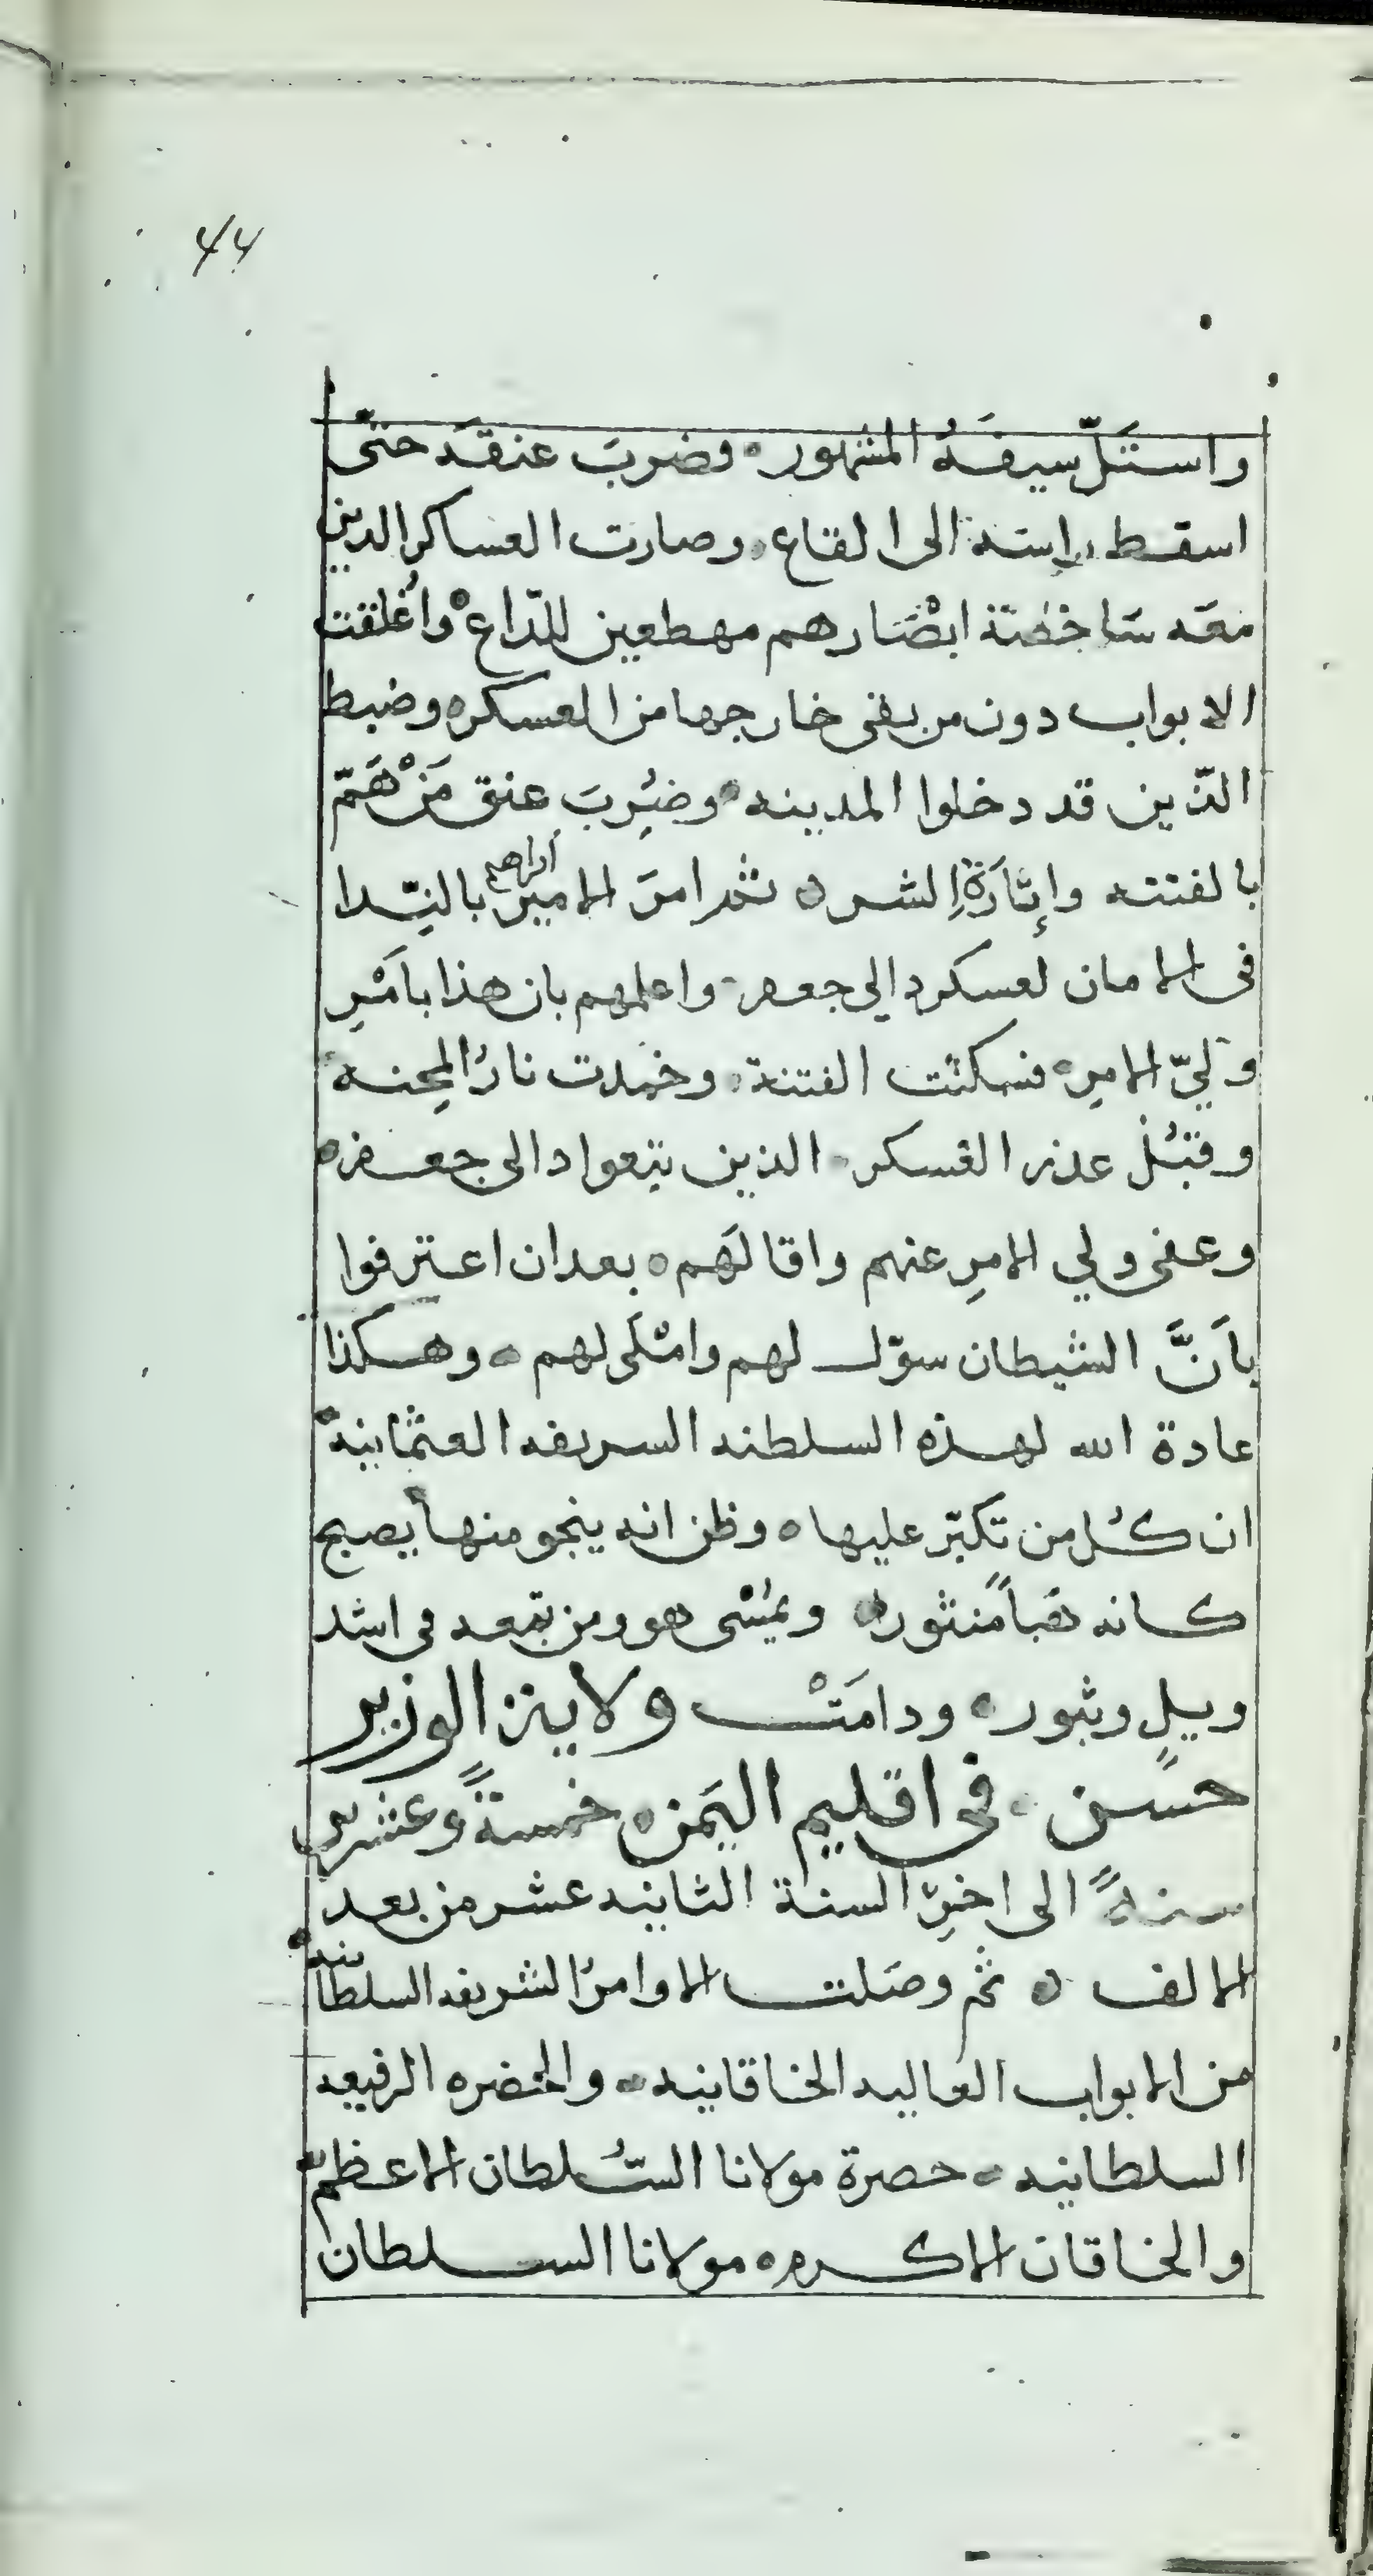 44
واستَلّ سيفَهُ المشهور ٥ وضربَ عنقَه حتّى
اسقط راسه الى القاع ٥ وصارت العساكر الدين
معَه شاخصَة ابصْارهم مهطعين للدّاع ٥ واُغلقت
الابواب دون من بقى خارجها من العسكر ٥ وضبط
الذّين قد دخلوا المدينه ٥ وضُرِبَ عنق مَنْ هَمّ
بالفتنه واِثارَةِ الشر ٥ ثم امرَ الامير ابراهيم بالنِّدا
فى الامان لعسكر دالي جعفر ٥ واعلمهم بان هذا باَمْرِ
وَليّ الامرِ ٥ فسكنَت الفتنة ٥ وخمدت نارُ المِحنه
وقبُل عذر العسكر ٥ الذين تبعوا دالى جعفر ٥
وعفى ولي الامرِ عنهم واقالَهم ٥ بعد ان اعترفوا
باَنَّ الشيطان سوّل لهم وامْلَى لهم ٥ وهكذا
عادة الله لهذه السلطنه السريفه العثمانيه ٥
ان كُل من تكبّر عليها ٥ وظن انه ينجو منها يصبح
كانه هَباً مَنثور ٥ ويمُسْى هو ومن تبعه فى اشد
ويلٍ وثبور ٥ ودامَتْ ولاية الوزير
حسَن ٥ فى اقليم اليَمن ٥ خمسةً وعشرين
سنةً الى اخرِ السنة الثانيه عشر من بعد
الالف ٥ ثم وصَلت الاوامرُ الشريفه السلطانيه ٥
من الابواب العاليه الخاقانيه ٥ والحضره الرفيعه
السلطانيه ٥ حصرة مولانا السُّلطان الاعظم ٥
والخاقان الاكرم ٥ مولانا السلطان